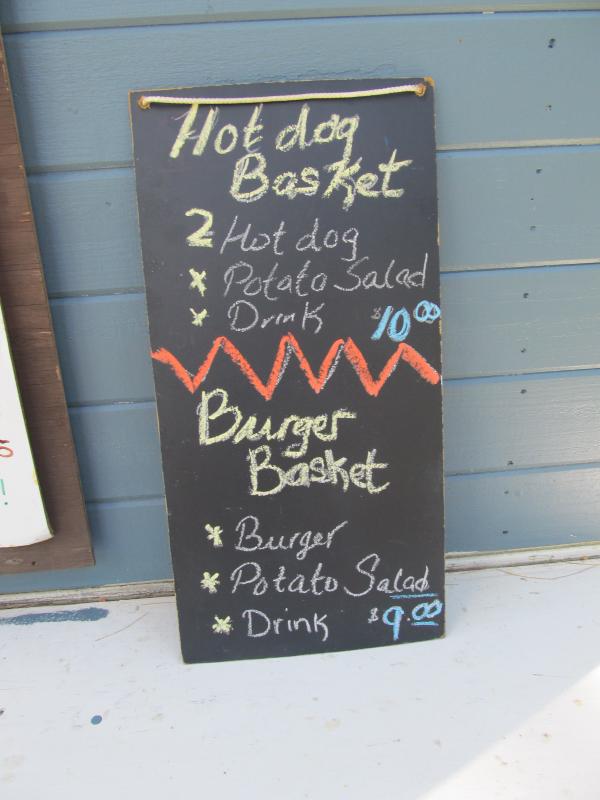 Hot dog
Basket
2 Hot dog
x Potato Salad
x Drink $10.00
Burger
Basket
x Burger
x Potato Salad
x Drink $9.00
!